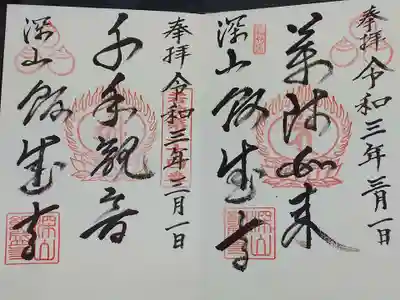 奉拝 令和三年三月一日
薬師如来
深山 飯盛寺
奉拝 令和三年三月一日
千手観音
深山 飯盛寺